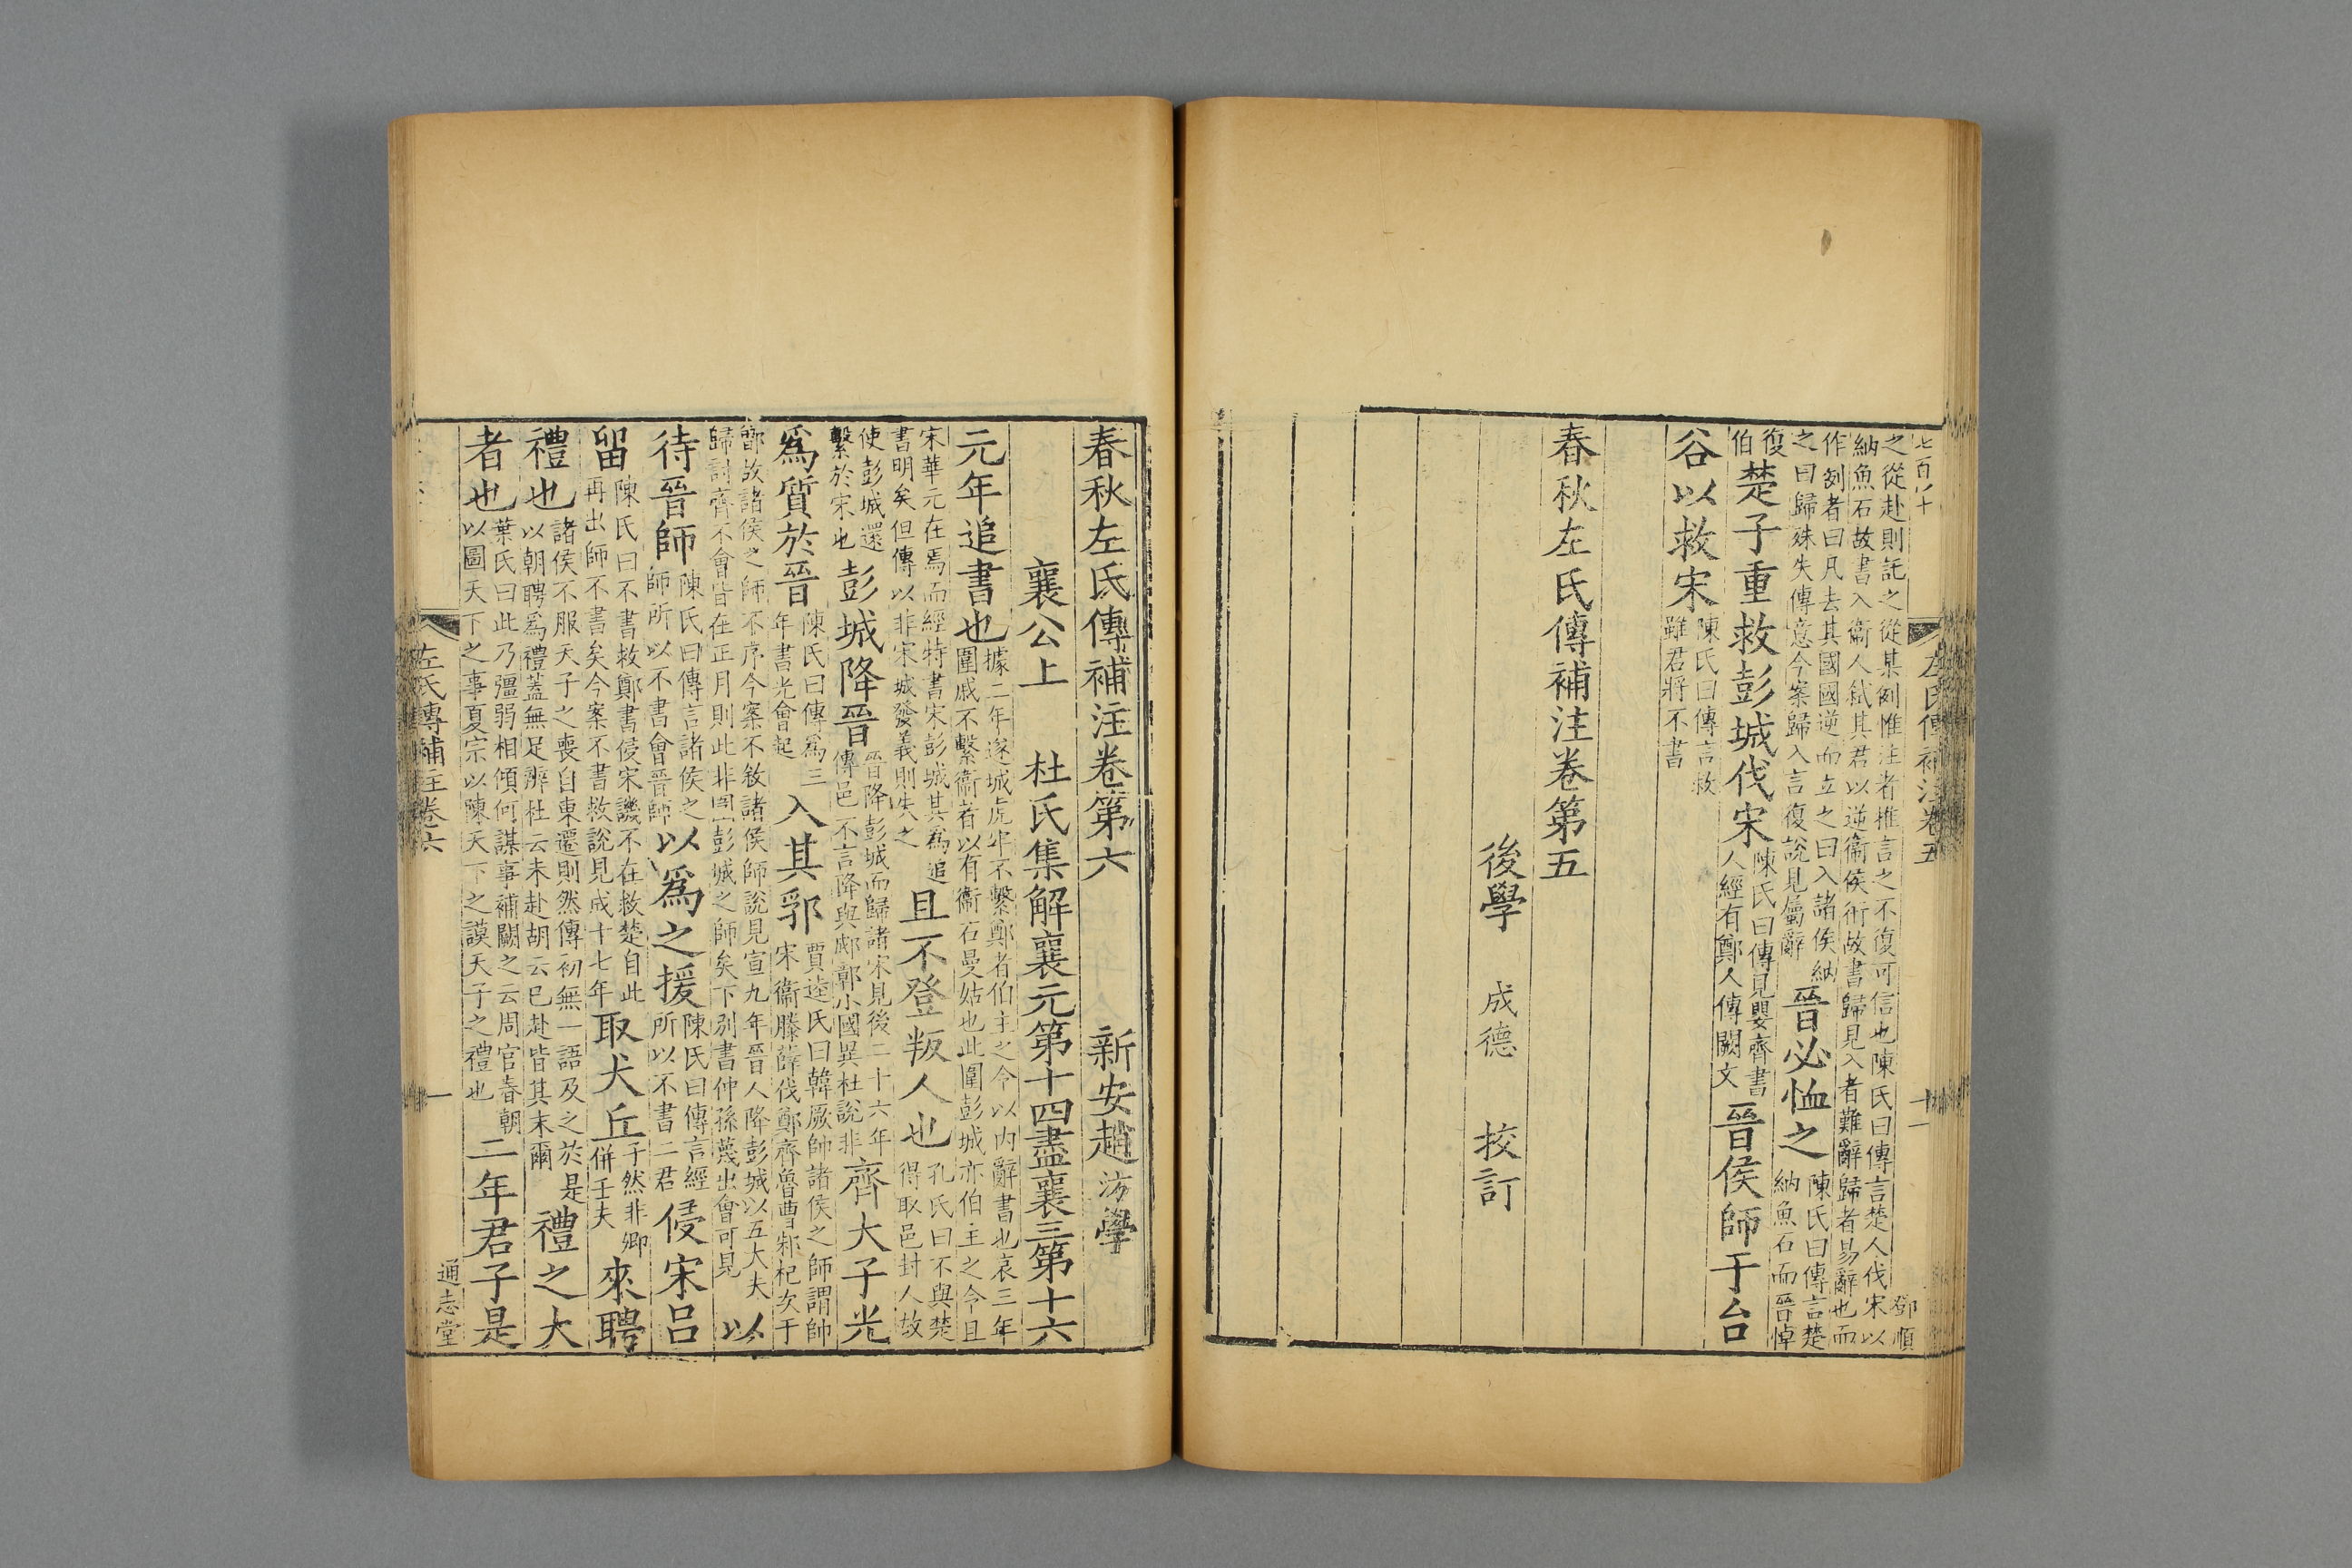 七百八十
之從赴則託之從某例惟注者推言之不復可信也陳氏曰傳言楚人伐宋以
納魚石故書入衞人弒其君以逆衞侯衎故書歸見入者難辭歸者易辭也而
作例者曰凡去其國國逆而立之曰入諸侯納
之曰歸殊失傳意今案歸入言復說見屬辭
晉必恤之
陳氏曰傳言楚
納魚石而晉悼
復
伯
楚子重救彭城伐宋
陳氏曰傳見嬰齊書
人經有鄭人傳闕文
晉侯師于台
谷以救宋
陳氏曰傳言救
雖君將不書
春秋左氏傳補注卷第五
後學 成德 挍訂
左氏傳補注卷五
十一
鄧順
春秋左氏傳補注卷第六
新安趙汸學
襄公上 杜氏集解襄元第十四盡襄三第十六
元年追書也
據二年遂城虎牢不繫鄭者伯主之令以內辭書也哀三年
圍戚不繫衞者以有衞石曼姑也此圍彭城亦伯主之令且
宋華元在焉而經特書宋彭城其爲追
書明矣但傳以非宋城發義則失之
且不登叛人也
孔氏曰不與楚
得取邑封人故
使彭城還
繫於宋也
彭城降晉
晉降彭城而歸諸宋見後二十六年
傳邑不言降與郕鄣小國異杜說非
齊大子光
爲質於晉
陳氏曰傳爲三
年書光會起
入其郛
賈逵氏曰韓厥帥諸侯之師謂帥
宋衞滕薛伐鄭齊魯曹邾杞次于
鄫故諸侯之師不序今案不敘諸侯師說見宣九年晉人降彭城以五大夫
歸討齊不會皆在正月則此非圍彭城之師矣下別書仲孫蔑出會可見
以
待晉師
陳氏曰傳言諸侯之
師所以不書會晉師
以爲之援
陳氏曰傳言經
所以不書二君
侵宋呂
留
陳氏曰不書救鄭書侵宋譏不在救楚自此
再出師不書矣今案不書救說見成十七年
取犬丘
于然非卿
併壬夫
來聘
禮也
諸侯不服天子之喪自東遷則然傳初無一語及之於是
以朝聘爲禮蓋無足辨杜云未赴胡云已赴皆其末爾
禮之大
者也
葉氏曰此乃彊弱相傾何謀事補闕之云周官春朝
以圖天下之事夏宗以陳天下之謨天子之禮也
二年君子是
左氏傳補注卷六
一
通志堂